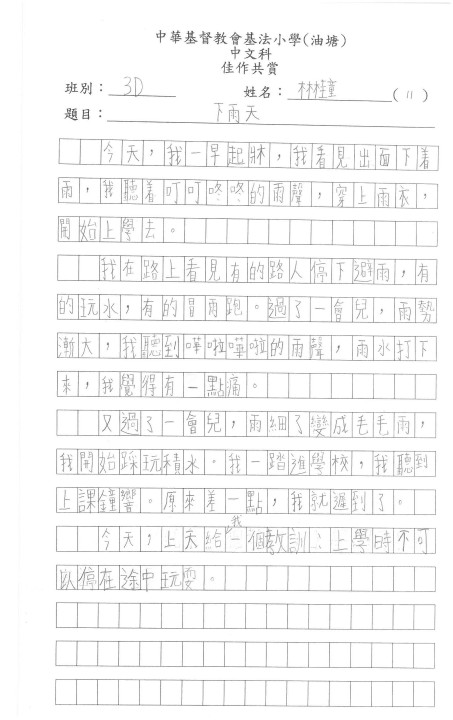 中華基督教會基法小學(油塘)
中文科
佳作共賞
班別：3D 姓名：林樟童(11)
題目：下雨天
今天，我一早起牀，我看見出面下着
雨，我聽着叮叮咚咚的雨聲，穿上雨衣，
開始上學去。
我在路上看見有的路人停下避雨，有
的玩水，有的冒雨跑。過了一會兒，雨勢
漸大，我聽到嘩啦嘩啦的雨聲，雨水打下
來，我覺得有一點痛。
又過了一會兒，雨細了變成毛毛雨，
我開始踩玩積水。我一踏進學校，我聽到
上課鐘響。原來差一點，我就遲到了。
今天，上天給我一個教訓：上學時不可
以停在途中玩耍。